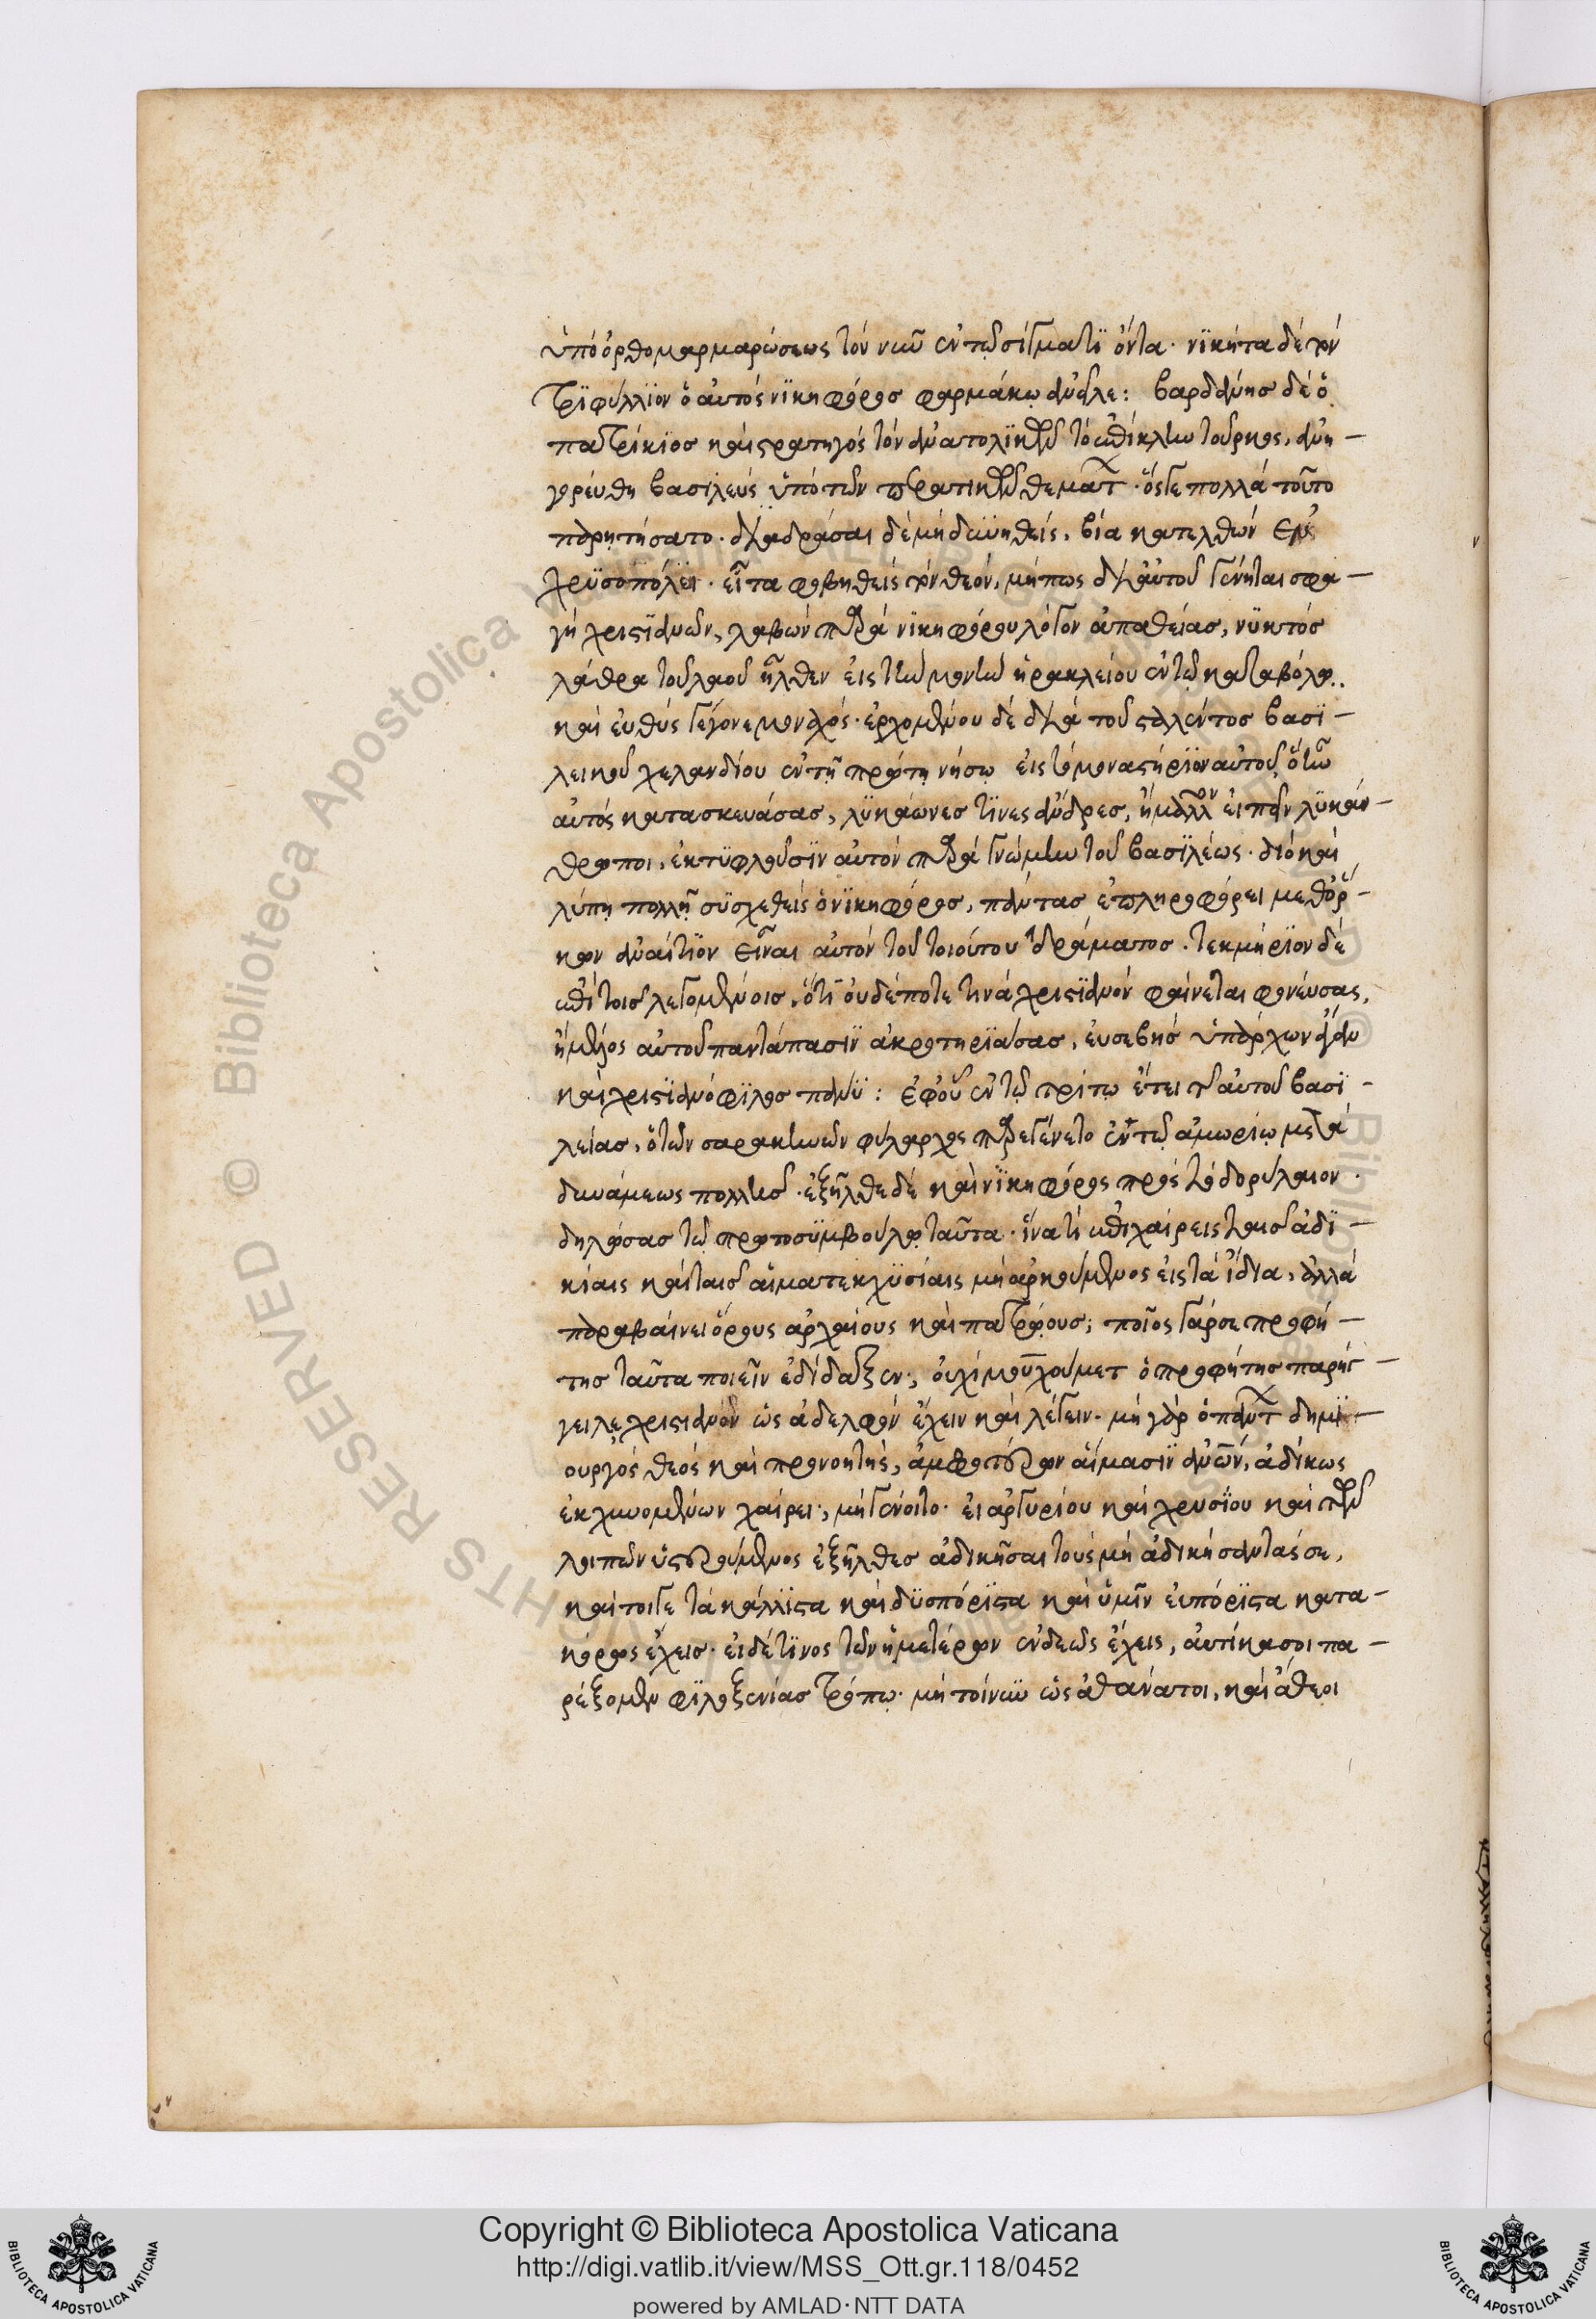 ὑπὸ ὀρθομαρμαρώσεως τὸν νῦν ἐν τῷ σίγματι ὄντα· νικήτα δὲ τὸν
τριφύλλιον ὁ αὐτὸς νικηφόρος φαρμάκω ἀνεῖλε: βαρδάνης δὲ ὁ
πατρίκιος καὶ στρατηγὸς τῶν ἀνατολικῶν τὸ ἐπίκλην τοῦρκος, ἀνη-
γορεύθη βασιλεὺς ὑπὸ τῶν περατικῶν θεμάτ· ὅς γε πολλὰ τοῦτο
παρῃτήσατο· διαδράσαι δὲ μὴ δυνηθεὶς, βία κατελθὼν ἐν
χρυσοπόλει· εἶτα φοβηθεὶς τὸν θεόν, μήπως δι' αὐτοῦ γένηται σφα-
γὴ χριστιανῶν, λαβὼν παρὰ νικηφόρου λόγον ἀπαθείας, νυκτὸς
λάθρα τοῦ λαοῦ ἦλθεν εἰς τὴν μονὴν ἡρακλείου ἐν τῷ καταβόλω..
καὶ εὐθὺς γέγονε μοναχός· ἐρχομένου δὲ διὰ τοῦ σταλέντος βασι-
λεικοῦ χελανδίου ἐν τῇ πρώτη νήσω εἰς τὸ μοναστήριον αὐτοῦ ὅ ἦν
αὐτὸς κατασκευάσας, λυκάωνες τινες ἄνδρες, ἢ μᾶλλον εἰπεῖν λυκάν-
θρωποι, ἐκτυφλοῦσιν αὐτὸν παρὰ γνώμην τοῦ βασιλέως· διὸ καὶ
λύπῃ πολλῇ συσχεθεὶς ὁ νικηφόρος, πάντας ἐπληροφόρει μεθ' ὅρ-
κων ἀναίτιον εἶναι αὐτὸν τοῦ τοιούτου δράματος· τεκμήριον δὲ
ἐπὶ τοῖς λεγομένοις, ὅτι οὐδέποτε τινὰ χριστιανὸν φαίνεται φονεύσας,
ἢ μέλος αὐτοῦ παντάπασιν ἀκρωτηριάσας, εὐσεβὴς ὑπάρχων ἄγαν
καὶ χριστιανόφιλος πάνυ: ἐφ' οὗ ἐν τῷ τρίτω ἔτει τῆς αὐτοῦ βασι-
λείας, ὁ τῶν σαρακηνῶν φύλαρχος παρεγένετο ἐν τῷ ἀμωρίω μετὰ
δυνάμεως πολλῆς· ἐξῆλθε δὲ καὶ νικηφόρος πρὸς τὸ δορύλαιον·
δηλώσας τῷ πρωτοσυμβούλω ταῦτα· ἵνα τί ἐπιχαίρεις ταῖς ἀδι-
κίαις καὶ ταῖς αἱματεκχυσίαις μὴ ἀρκούμενος εἰς τὰ ἴδια, ἀλλὰ
παραβαίνει ὅρους ἀρχαίους καὶ πατρώους; ποῖος γάρ σε προφή-
της ταῦτα ποιεῖν ἐδίδαξεν; οὐχὶ μουχούμετ ὁ προφήτης παρήγ-
γειλε χριστιανὸν ὡς ἀδελφὸν ἔχειν καὶ λέγειν· μὴ γὰρ ὁ πάντ δημι-
ουργὸς θεὸς καὶ προνοητὴς, ἀμφοτέρων αἵμασιν ἀνῶν, ἀδίκως
ἐκχυνομένων χαίρει; μὴ γένοιτο· εἰ ἀργυρίου καὶ χρυσίου καὶ τῶν
λοιπῶν ὑστερούμενος ἐξῆλθες ἀδικῆσαι τοὺς μὴ ἀδικήσαντάς σε,
καίτοιγε τὰ κάλλιστα καὶ δυσπόριστα καὶ ὑμῖν εὐπόριστα κατα-
κόρως ἔχεις· εἰ δέ τινος τῶν ἡμετέρων ἐνδεῶς ἔχεις, αὐτίκα σοι πα-
ρέξομεν φιλοξενίας τρόπω· μὴ τοίνυν ὡς ἀθάνατοι, καὶ ἄθεοι
Copyright © Biblioteca Apostolica Vaticana
http://digi.vatlib.it/view/MSS_Ott.gr.118/0452
powered by AMLAD·NTT DATA